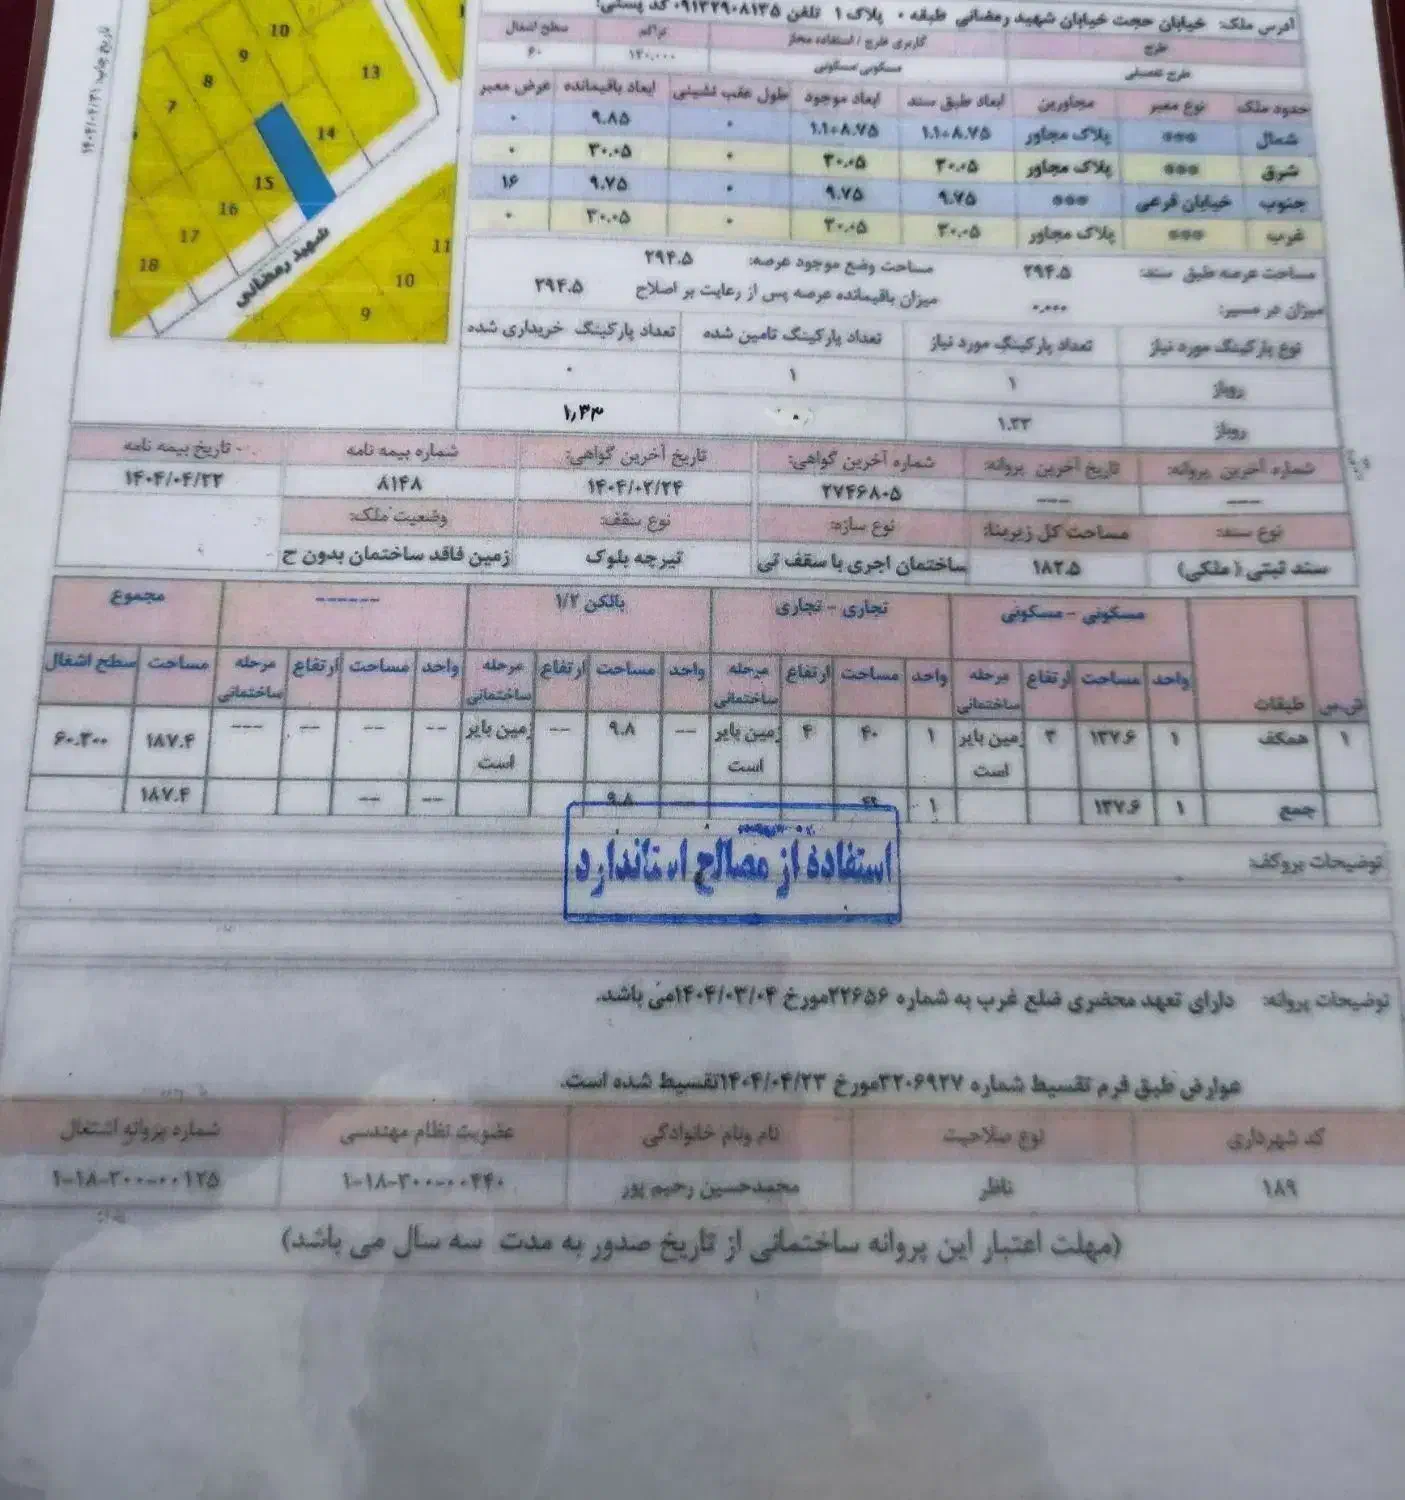 آدرس ملک: خیابان حجت خیابان شهید رمضانی طبقه ۰ پلاک ۱ تلفن ۰۹۱۳۲۹۰۸۱۳۵ کد پستی:
طرح کاربری طرح / استفاده مجاز تراکم سطح اشغال
طرح تفصیلی مسکونی/مسکونی ۱۲۰.۰۰۰ ۶۰
حدود ملک نوع معبر مجاورین ابعاد طبق سند ابعاد موجود طول عقب نشینی ابعاد باقیمانده عرض معبر
شمال *** پلاک مجاور ۱.۱+۸.۷۵ ۱.۱+۸.۷۵ ۰ ۹.۸۵ ۰
شرق *** پلاک مجاور ۳۰.۰۵ ۳۰.۰۵ ۰ ۳۰.۰۵ ۰
جنوب خیابان فرعی *** ۹.۷۵ ۹.۷۵ ۰ ۹.۷۵ ۱۶
غرب *** پلاک مجاور ۳۰.۰۵ ۳۰.۰۵ ۰ ۳۰.۰۵ ۰
مساحت عرصه طبق سند: ۲۹۴.۵ مساحت وضع موجود عرصه: ۲۹۴.۵
میزان در مسیر: ۰.۰۰۰ میزان باقیمانده عرصه پس از رعایت بر اصلاح ۲۹۴.۵
نوع پارکینگ مورد نیاز تعداد پارکینگ مورد نیاز تعداد پارکینگ تامین شده تعداد پارکینگ خریداری شده
روباز ۱ ۱ ۰
روباز ۱.۳۳ ۰ ۱٫۳۳
تاریخ چاپ ۱۴۰۴/۰۴/۳۱
10
9
8
7
13
14
15
16
17
18
شهید رمضانی
11
10
9
شماره آخرین پروانه: تاریخ آخرین پروانه: شماره آخرین گواهی: تاریخ آخرین گواهی: شماره بیمه نامه تاریخ بیمه نامه
--- --- ۲۷۴۶۸۰۵ ۱۴۰۴/۰۲/۲۴ ۸۱۴۸ ۱۴۰۴/۰۴/۲۲
نوع سند: مساحت کل زیربنا: نوع سازه: نوع سقف: وضعیت ملک:
سند ثبتی ( ملکی) ۱۸۲.۵ ساختمان اجری با سقف تی تیرچه بلوک زمین فاقد ساختمان بدون ح
ش.س طبقات مسکونی - مسکونی تجاری - تجاری بالکن ۱/۲ ------ مجموع
واحد مساحت ارتفاع مرحله ساختمانی واحد مساحت ارتفاع مرحله ساختمانی واحد مساحت ارتفاع مرحله ساختمانی واحد مساحت ارتفاع مرحله ساختمانی مساحت سطح اشغال
۱ همکف ۱ ۱۳۷.۶ ۳ زمین بایر است ۱ ۴۰ ۴ زمین بایر است --- ۹.۸ --- زمین بایر است --- --- --- --- ۱۸۷.۴ ۶۰.۳۰۰
جمع ۱ ۱۳۷.۶ ۱ ۹.۸ --- --- ۱۸۷.۴
توضیحات بروکف:
استفاده از مصالح استاندارد
توضیحات پروانه: دارای تعهد محضری ضلع غرب به شماره ۲۲۶۵۶مورخ ۱۴۰۴/۰۳/۰۴می باشد.
عوارض طبق فرم تقسیط شماره ۳۲۰۶۹۲۷مورخ ۱۴۰۴/۰۴/۲۳تقسیط شده است.
کد شهرداری نوع صلاحیت نام ونام خانوادگی عضویت نظام مهندسی شماره پروانه اشتغال
۱۸۹ ناظر محمدحسین رحیم پور ۱-۱۸-۳۰۰-۰۰۴۴۰ ۱-۱۸-۳۰۰-۰۰۱۲۵
(مهلت اعتبار این پروانه ساختمانی از تاریخ صدور به مدت سه سال می باشد)